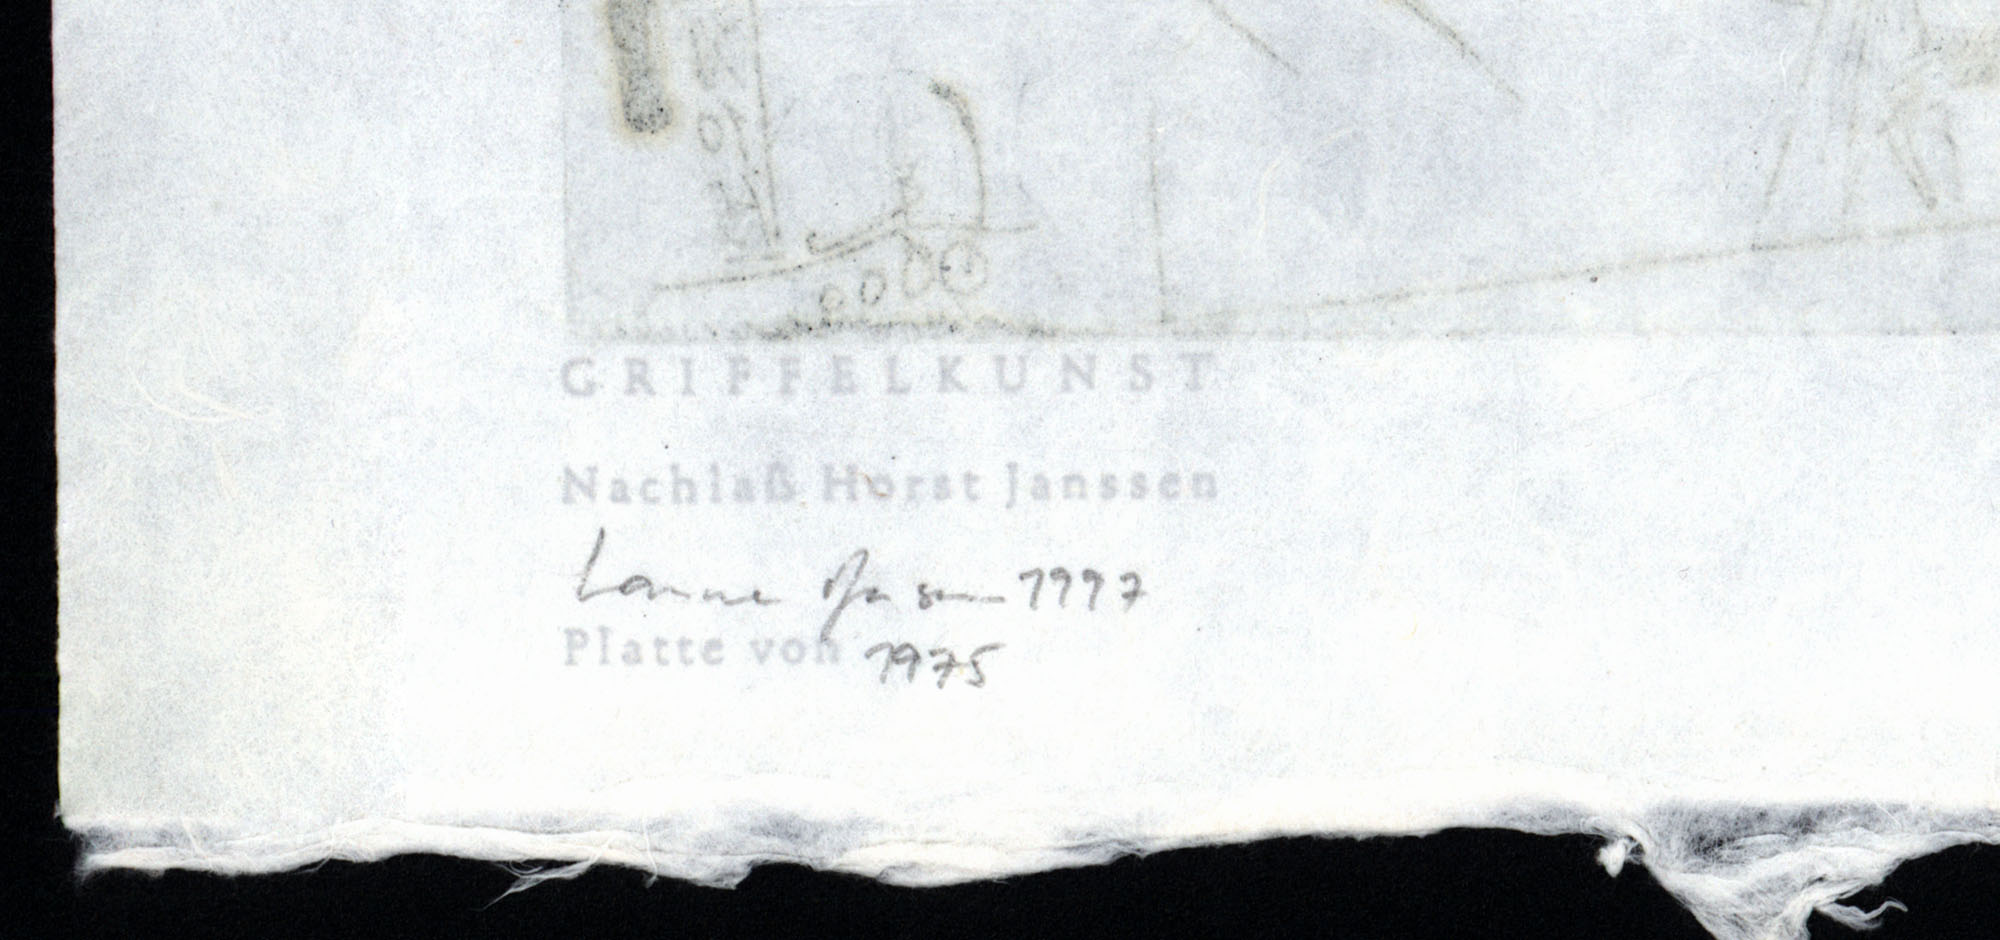 GRIFFELKUNST
Nachlaß Horst Janssen
1997
Platte von 1975